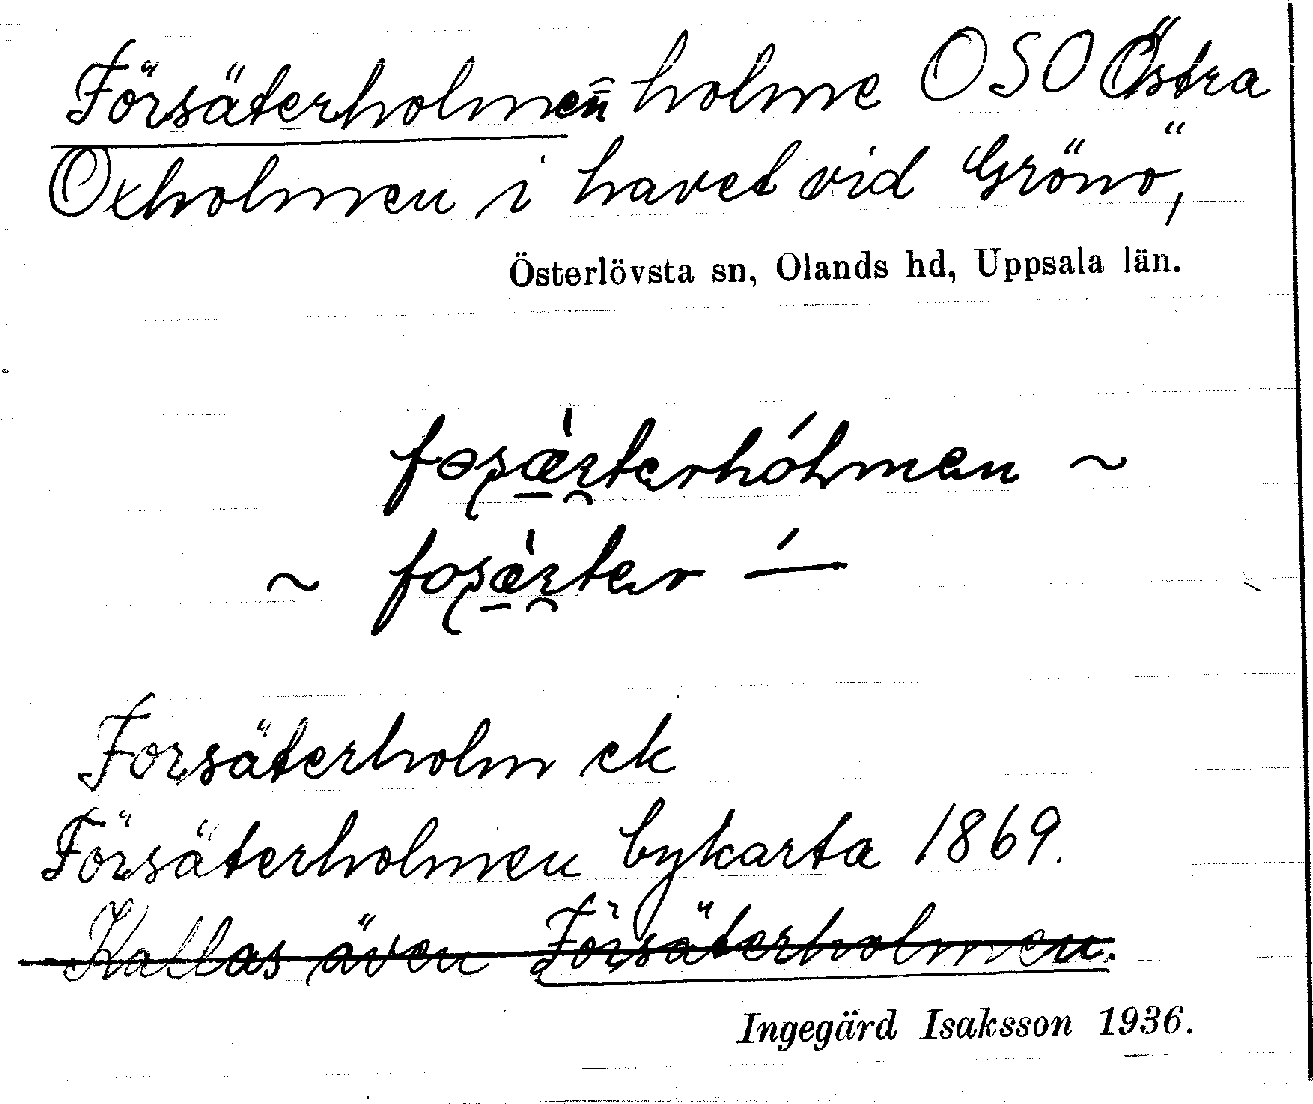 Försäterholmen holme OSO Östra
Oxholmen i havet vid Grönö,
Österlövsta sn, Olands hd, Uppsala län.
~
~
Forsäterholm ek
Försäterholmen bykarta 1869.
Kallas även Försäterholmen.
Ingegärd Isaksson 1936.